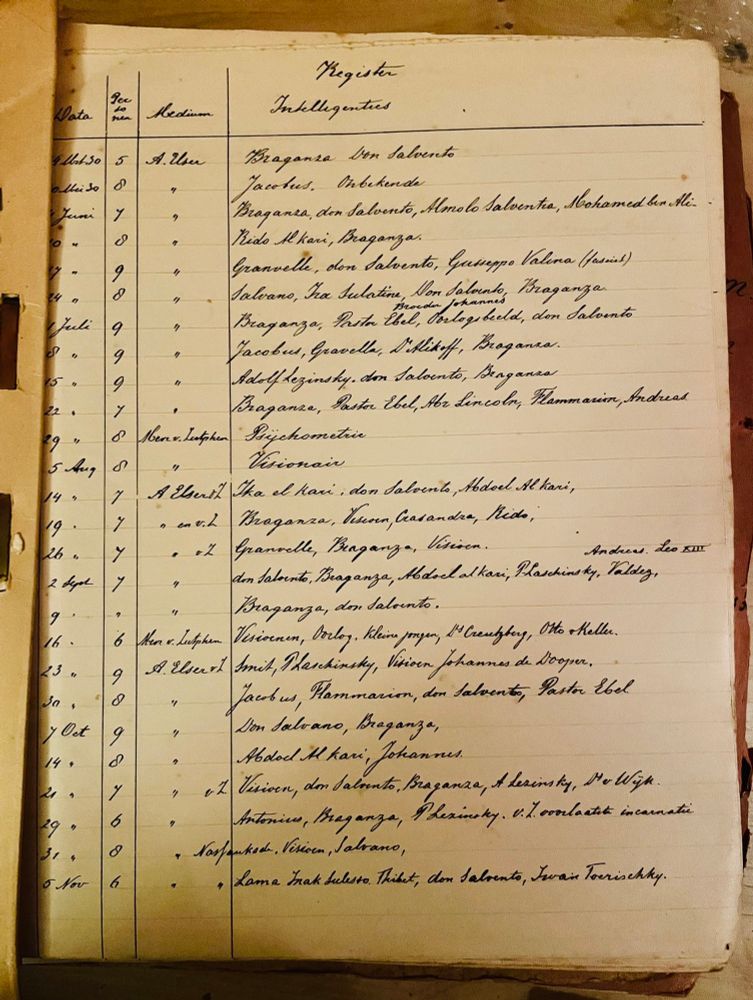 Register
Data Per so nen Medium Intelligenties
30 5 A. Elser Braganza Don Salvento
Mei 30 8 " Jacobus. Onbekende
Juni 7 " Braganza, don Salvento, Almolo Salventra, Mohamed ben Ali
" 8 " Rido Al kari, Braganza.
" 9 " Granvelle, don Salvento, Guseppo Valina (fascist)
" 8 " Salvano, Ira Sulatine, Don Salvento, Braganza
Broeder Johannes
Juli 9 " Braganza, Pastor Ebel, Oorlogsbeeld, don Salvento
8 " 9 " Jacobus, Gravella, Dr Alikoff, Braganza.
15 " 9 " Adolf Lezinsky. don Salvento, Braganza
22 " 7 " Braganza, Pastor Ebel, Abr Lincoln, Flammarion, Andreas
29 " 8 Mevr v. Zutphen Psychometrie
5 Aug 8 " Visionair
14 " 7 A Elser v Z Ika el kari. don Salvento, Abdoel Al kari,
19 . 7 " en v. Z Braganza, Visioen, Casandra, Rido,
26 " 7 " v Z Granvelle, Braganza, Visioen. Andreas. Leo XIII
2 Sept 7 " don Salvento, Braganza, Abdoel al kari, P Laschinsky, Valdez,
9 . " " Braganza, don Salvento.
16 . 6 Mevr v. Zutphen Visioenen, Oorlog. kleine jongen, Ds Creutzberg, Otto v Keller.
23 " 9 A. Elser v Z Smit, P Laschinsky, Visioen Johannes de Dooper.
30 " 8 " Jacobus, Flammarion, don Salvento, Pastor Ebel
7 Oct 9 " Don Salvano, Braganza,
14 " 8 " Abdoel Al kari, Johannes
21 " 7 " v Z Visioen, don Salvento, Braganza, A Lezinsky, Dr v Wijk.
29 " 6 " Antonius, Braganza, P Lezinsky. v. Z. voorlaatste incarnatie
31 " 8 " Visioen, Salvano,
5 Nov 6 " " Lama Inak Sulesso. Thibet, don Salvento, Iwan Toerischky.